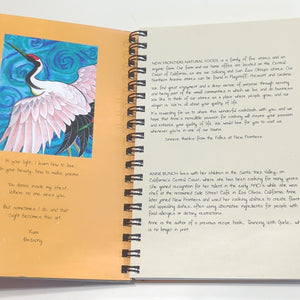 In your light, I learn how to love
In your beauty, how to make poems
You dance inside my chest,
Where no one sees you,
But sometimes I do, and that
Sight becomes this art.
Rumi
NEW FRONTIERS NATURAL FOODS is a family of five stores and an
organic farm. Our farm and home office are located on the Central
Coast of California, as are our Solvang and San Luis Obispo stores. Our
Northern Arizona stores can be found in Flagstaff, Prescott and Sedona.
We find great enjoyment and a deep sense of purpose through serving
and being part of the small communities in which we live and do business.
We like to think of our stores as places where people grow, and our
slogan is: We're all about your quality of life.
It is rewarding for us to share this wonderful cookbook with you and we
hope that Anne's incredible passion for cooking will inspire your passion
and enhance your quality of life. We would love for you to visit us
wherever you're in one of our towns.
Sincere thanks from the folks at New Frontiers
ANNE BUNCH lives with her children in the Santa Ynez Valley, on
California's Central Coast, where she has been cooking for many years.
She gained recognition for her talent in the early 1990's while she was
chef at the renowned Side Street Cafe in Los Olivos, California. Anne
later joined New Frontiers and used her cooking abilities to create flavorful,
appealing dishes, often using alternative ingredients for people with
food allergies or dietary restrictions.
Anne is the author of a previous recipe book, Dancing with Garlic, which
is no longer in print.